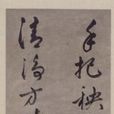 手把秧
清淨方